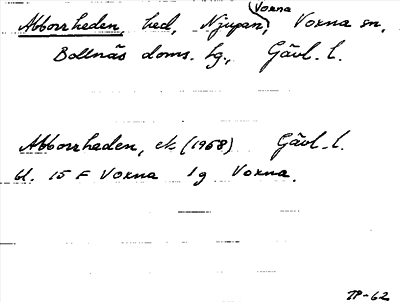 Voxna
Abborrheden, hed, Njupan, Voxna sn,
Bollnäs doms. hg., Gävl. l.
Abborrheden, ek (1958) Gävl. l.
bl. 15 F Voxna 1g Voxna.
TP-62